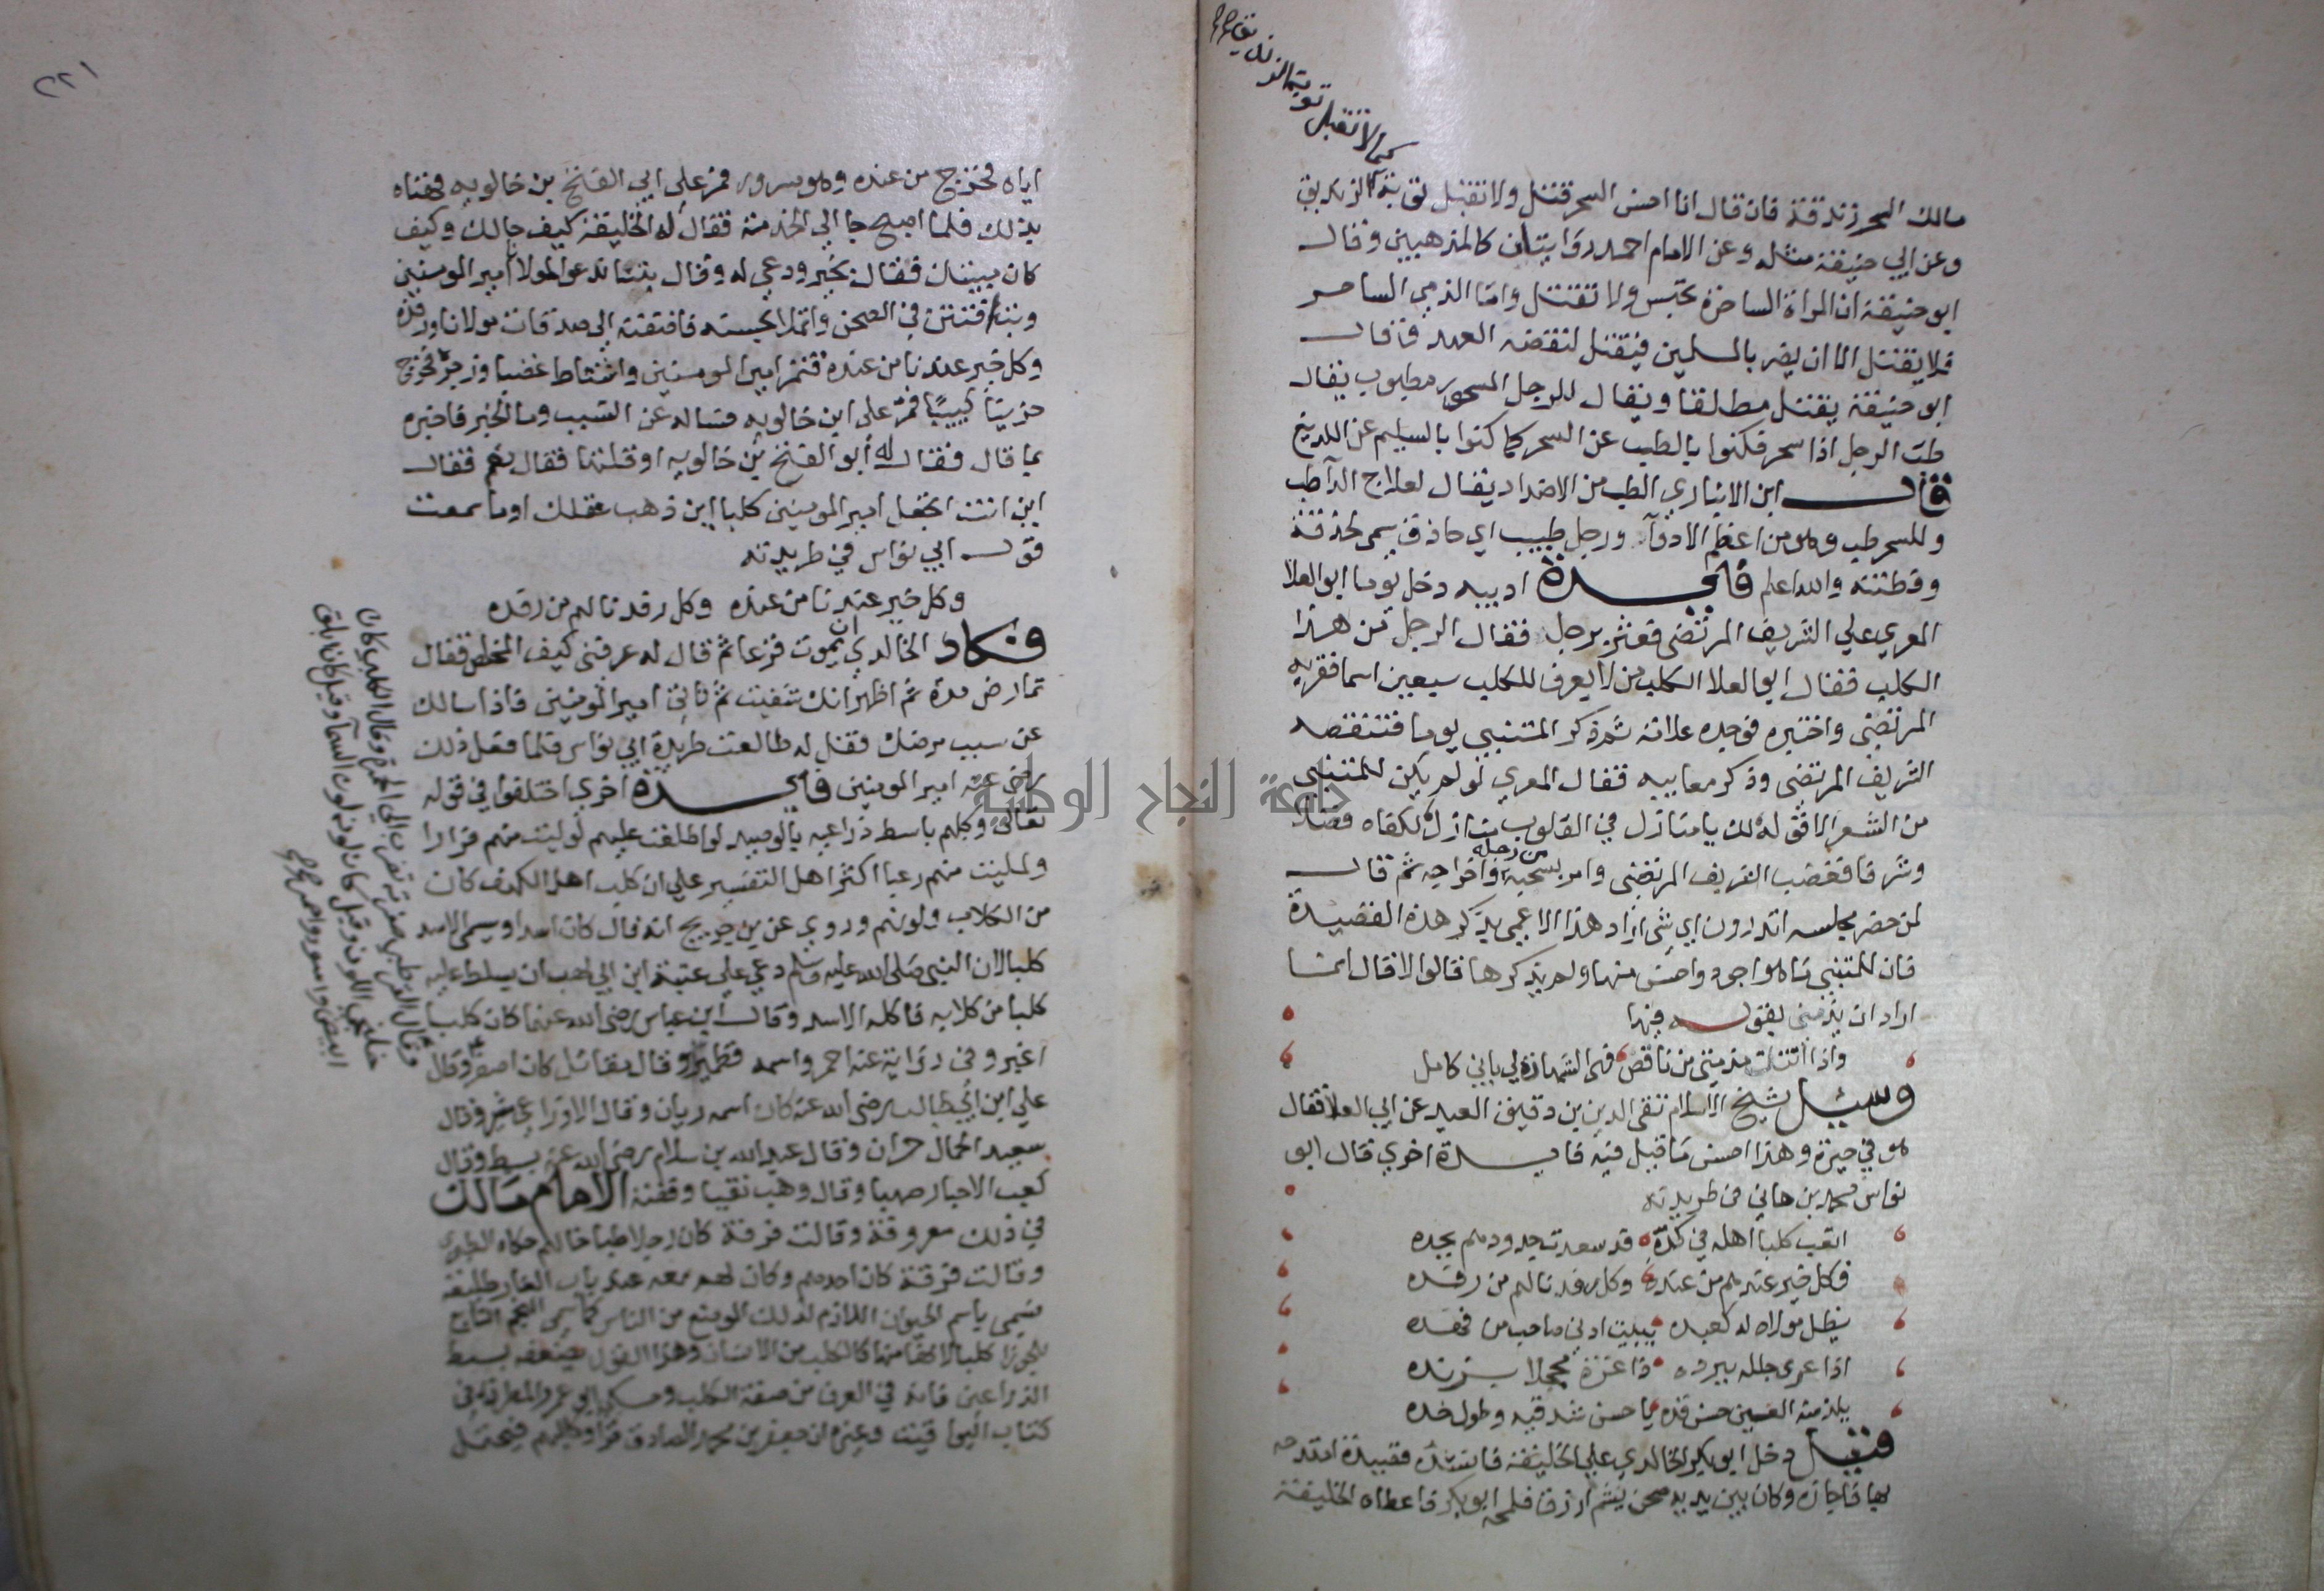 كما لا تقبل توبة الزنديق
مالك السحر زندقة فان قال انا احسن السحر قتل ولا تقبل توبته كالزنديق
وعن ابي حنيفة مثله وعن الامام احمد روايتان كالمذهبين وقال
ابو حنيفة ان المراة الساحرة تحبس ولا تقتل واما الذمي الساحر
فلا يقتل الا ان يضر بالمسلمين فيقتل لنقضه العهد وقال
ابو حنيفة يقتل مطلقا ويقال للرجل المسحور مطبوب يقال
طب الرجل اذا سحر فكنوا بالطب عن السحر كما كنوا بالسليم عن اللديغ
قال ابن الانباري الطب من الاضداد يقال لعلاج الدآ طب
وللسحر طب وهو من اعظم الادوآ ورجل طبيب اي حاذق سمي لحذقه
وفطنته والله اعلم فايدة ادبيه دخل يوما ابو العلا
المعري علي الشريف المرتضى فعثر برجل فقال الرجل من هذا
الكلب فقال ابو العلا الكلب من لا يعرف للكلب سبعين اسما فقربه
المرتضى واختبره فوجده علامة ثم ذكر المتنبي يوما فتنقصه
الشريف المرتضى وذكر معايبه فقال المعري لو لم يكن للمتنبي
من الشعر الا قوله لك يا منازل في القلوب منازل لكفاه فضلا
وشرفا فغضب الشريف المرتضى وامر بسحبه من رجله واخراجه ثم قال
لمن حضر مجلسه اتدرون اي شي اراد هذا الاعمي بذكر هذه القصيدة
فان للمتنبي ما هو اجود واحسن منها ولم يذكرها قالوا لا قال انما
اراد ان يذمني بقوله فيها
واذا اتتك مذمتي من ناقص فهى الشهادة لي باني كامل
وسيل شيخ الاسلام تقى الدين بن دقيق العيد عن ابي العلا فقال
هو في حيرة وهذا احسن ما قيل فيه فايدة اخري قال ابو
نواس محمد بن هاني في طريدته
اتعب كلبا اهله في كده قد سعدت جدودهم بجده
فكل خير عندهم من عنده وكل رفد نالهم من رفده
يظل مولاه له كعبده يبيت ادنى صاحب من
اذا عرى جلله ببرده ذا غرة محجلا بزنده
يلذ منه العين حسن قده يا حسن شدقيه وطول خده
فقيل دخل ابو بكر الخالدي علي الخليفة فانشده قصيدة امتدحه
بها فاجازه وكان بين يديه صحن يشم ازرق فلمحه ابو بكر فاعطاه الخليفة
٢٢١
اياه فخرج من عنده وهو مسرور فمر علي ابي الفتح بن خالويه فهناه
بذلك فلما اصبح جا الي الخدمة فقال له الخليفة كيف حالك وكيف
كان مبيتك فقال بخير ودعي له وقال بتنا ندعوا لمولانا امير المومنين
في الصحن مولانا ورفده
وكل خير عندنا من عنده امير المومنين واشتاط غضبا وزجره فخرج
حزينا كييبا فمر على ابن خالويه فساله عن السبب وما الخبر فاخبره
بما قال فقال له أبو الفتح بن خالويه او قلتها فقال نعم فقال
اين انت اتجعل امير المومنين كلبا اين ذهب عقلك اوما سمعت
قول ابي نواس في طريدته
وكل خير عندنا من عنده وكل رفد نالهم من رفده
فكاد الخالدي ان يموت فزعا ثم قال له عرفني كيف المخلص فقال
تمارض مدة ثم اظهر انك شفيت ثم فاتى امير المومنين فاذا سالك
عن سبب مرضك فقل له طالعت طريدة ابي نواس فلما فعل ذلك
رضي عنه امير المومنين فايدة اخري اختلفوا في قوله
تعالى وكلبهم باسط ذراعيه بالوصيد لو اطلعت عليهم لوليت منهم فرارا
ولمليت منهم رعبا اكثر اهل التفسير علي ان كلب اهل الكهف كان
من الكلاب ولونهم وروي عن بن جريج انه قال كان اسدا ويسمي الاسد
كلبا لان النبي صلى الله عليه وسلم دعي على عتبة ابن ابي لهب ان يسلط عليه
كلبا من كلابه فاكله الاسد وقال ابن عباس رضي الله عنهما كان كلبا
اغبر وفى رواية عنه احمر واسمه قطمير وقال مقاتل كان اصفر وقال
علي ابن ابي طالب رضي الله عنه كان اسمه ريان وقال الاوزاعي وقال
سعيد الحمال حران وقال عبد الله بن سلام رضي الله عنه بسيط وقال
كعب الاحبار صهبا وقال وهب نقيبا وقفنة الامام مالك
في ذلك معروفة وقالت فرقة كان رجلا طباخا لهم حكاه الطبري
وقالت فرقة كان احدهم وكان قعد عند باب الغار طليعة
فسمي باسم الحيوان الملازم لذلك الموضع من الناس كما سمي النجم التابع
للجوزا كلبا لانه منها كالكلب من الانسان وهذا القول يضعفه بسط
الذراعين فانه في العرف من صفة الكلب وحكي ابو عمر المطرزي في
كتاب اليواقيت وغيره ان جعفر بن محمد الصادق قرا وكالبهم فيحتمل